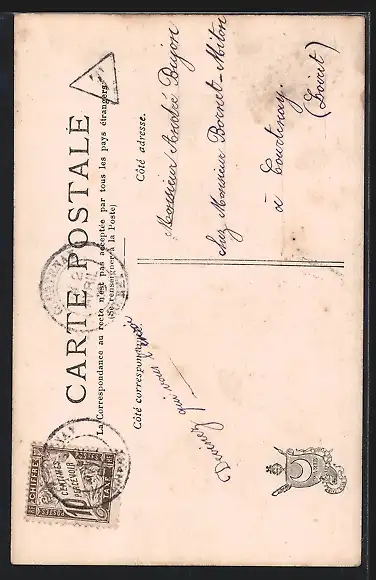 CARTE POSTALE
La Correspondance au recto n'est pas acceptée par tous les pays étrangers
(Se renseigner à la Poste)
Côté correspondance.
Côté adresse.
T
Monsieur André Bujon
chez Monsieur Bornet-Milon
à Courtenay.
(Loiret)
Devinez qui vous
CHIFFRE
10
CENTIMES
À PERCEVOIR
TAXE
POSTES